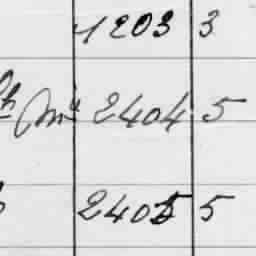 1203 3
2404 5
2405 5